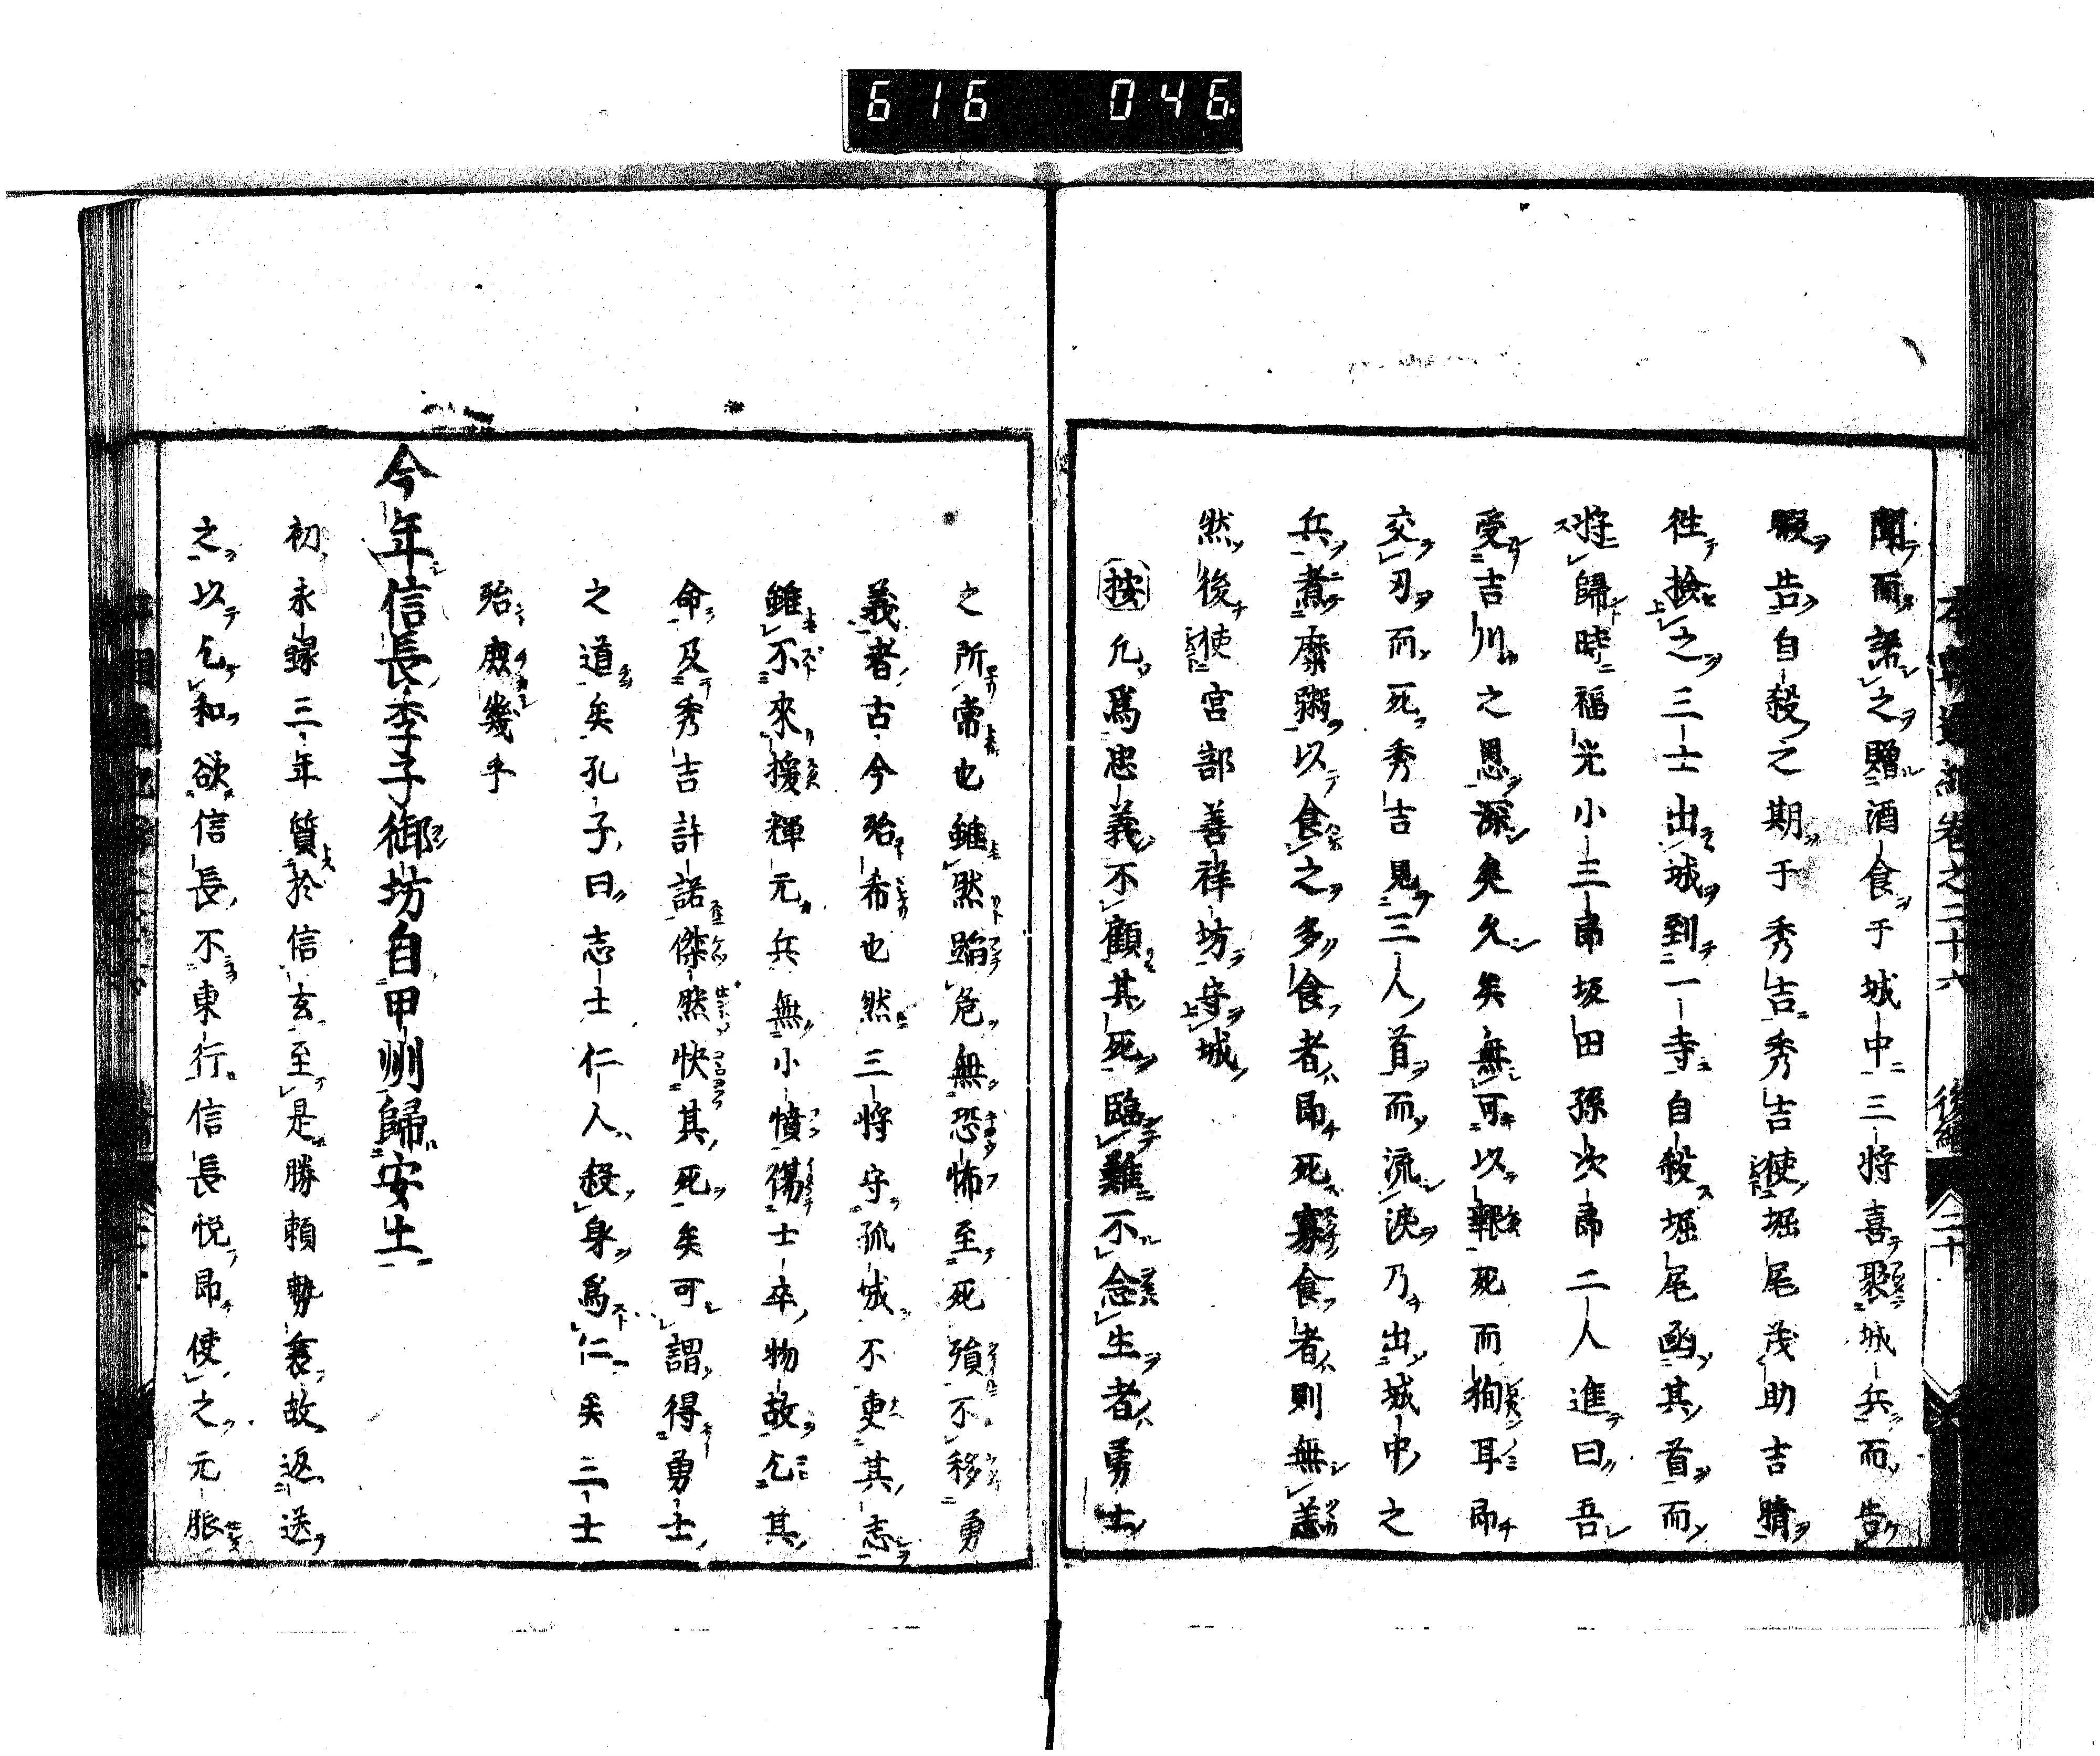 616 046
本朝通紀卷之二十六 後編 二十
聞而諾之贈酒食于城中三將喜聚城兵而告
暇告自殺之期于秀吉秀吉使堀尾茂助吉晴
徃撿之三士出城到一寺自殺堀尾函其首而
將歸時福光小三郎坂田孫次郎二人進曰吾
受吉川之恩深矣久矣無可以報死而狥耳即
交刃而死秀吉見三人首而流淚乃出城中之
兵煮糜粥以食之多食者即死寡食者則無恙
然後使宮部善祥坊守城
按凢爲忠義不顧其死臨難不念生者勇士
之所常也雖然蹈危無恐怖至死殞不移勇
義者古今殆希也然三將守孤城不更其志
雖不來援輝元兵無小憤傷士卒物故乞其
命及秀吉許諾傑然快其死矣可謂得勇士
之道矣孔子曰志士仁人殺身爲仁矣三士
殆庻幾乎
今年信長季子御坊自甲州歸安土
初永錄三年質於信玄至是勝頼勢衰故返送
之以乞和欲信長不東行信長悦即使之元服